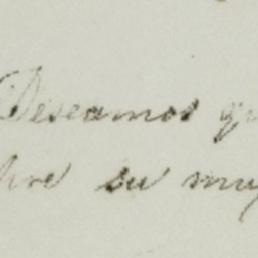 Deseamos qu
hre su muy